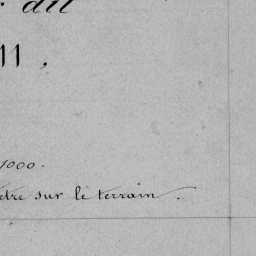 dit
11.
1000.
etre sur le terrain.